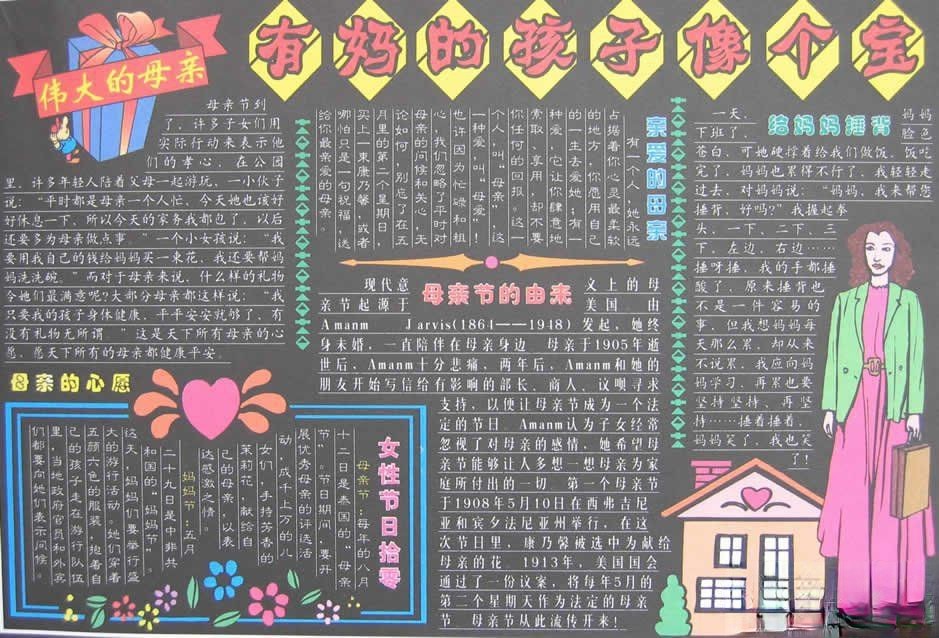 有妈的孩子像个宝
伟大的母亲
母亲节到
了，许多子女们用
实际行动来表示他
们的孝心，在公园
里，许多年轻人陪着父母一起游玩，一小伙子
说：“平时都是母亲一个人忙，今天她也该好
好休息一下，所以今天的家务我都包了，以后
还要多为母亲做点事。”一个小女孩说：“我
要用我自己的钱给妈妈买一束花，我还要帮妈
妈洗洗碗。”而对于母亲来说，什么样的礼物
令她们最满意呢?大部分母亲都这样说：“我
只要我的孩子身体健康，平平安安就够了，有
没有礼物无所谓”这是天下所有母亲的心
愿，愿天下所有的母亲都健康平安。
母亲的心愿
亲爱的母亲
有一个人，她永远
占据着你心灵最柔软
的地方，你愿用自己
的一生去爱她；有一
种爱，它让你肆意地
索取、享用，却不要
你任何的回报。这一
个人，叫“母亲”，这
一种爱，叫“母爱”！
也许因为忙碌和粗
心，我们忽略了平时对
母亲的问候和关心，无
论如何，别忘了在五
月里的第二个星期日，
买上一束康乃馨，或者
哪怕只是一句祝福，送
给你最亲爱的母亲。
给妈妈捶背
一天，妈妈
下班了，脸色
苍白，可她硬撑着给我们做饭。饭吃
完了，妈妈也累得不行了，我轻轻走
过去，对妈妈说：“妈妈，我来帮您
捶背，好吗?”我握起拳
头，一下、二下、三
下，左边，右边……
捶呀捶，我的手都捶
酸了，原来捶背也
不是一件容易的
事，但我想妈妈每
天那么累，却从来
不说累，我应向妈
妈学习，再累也要
坚持坚持、再坚
持……捶着捶着，
妈妈笑了，我也笑
了！
母亲节的由来
现代意义上的母
亲节起源于美国，由
Amanm Jarvis(1864——1948)发起，她终
身未婚，一直陪伴在母亲身边，母亲于1905年逝
世后，Amanm十分悲痛，两年后，Amanm和她的
朋友开始写信给有影响的部长、商人、议呗寻求
支持，以便让母亲节成为一个法
定的节日。Amanm认为子女经常
忽视了对母亲的感情，她希望母
亲节能够让人多想一想母亲为家
庭所付出的一切。第一个母亲节
于1908年5月10日在西弗吉尼
亚和宾夕法尼亚州举行，在这
次节日里，康乃馨被选中为献给
母亲的花。1913年，美国国会
通过了一份议案，将每年5月的
第二个星期天作为法定的母亲
节 母亲节从此流传开来！
女性节日拾零
母亲节：每年的八月
十二日是泰国的“母亲
节”。节日期间，要开
展优秀母亲的评选活
动，成千上万的儿
女们，手持芳香的
茉莉花，献给自
己的母亲，以表
达感激之情。
妈妈节：五月
二十九日是中非共
和国的“妈妈节”
这天，妈妈们要举行盛
大的游行活动。她们穿着
五颜六色的服装，抱着自
己的孩子走在游行队伍
里，当地政府官员和外宾
们都要向她们表示问候。